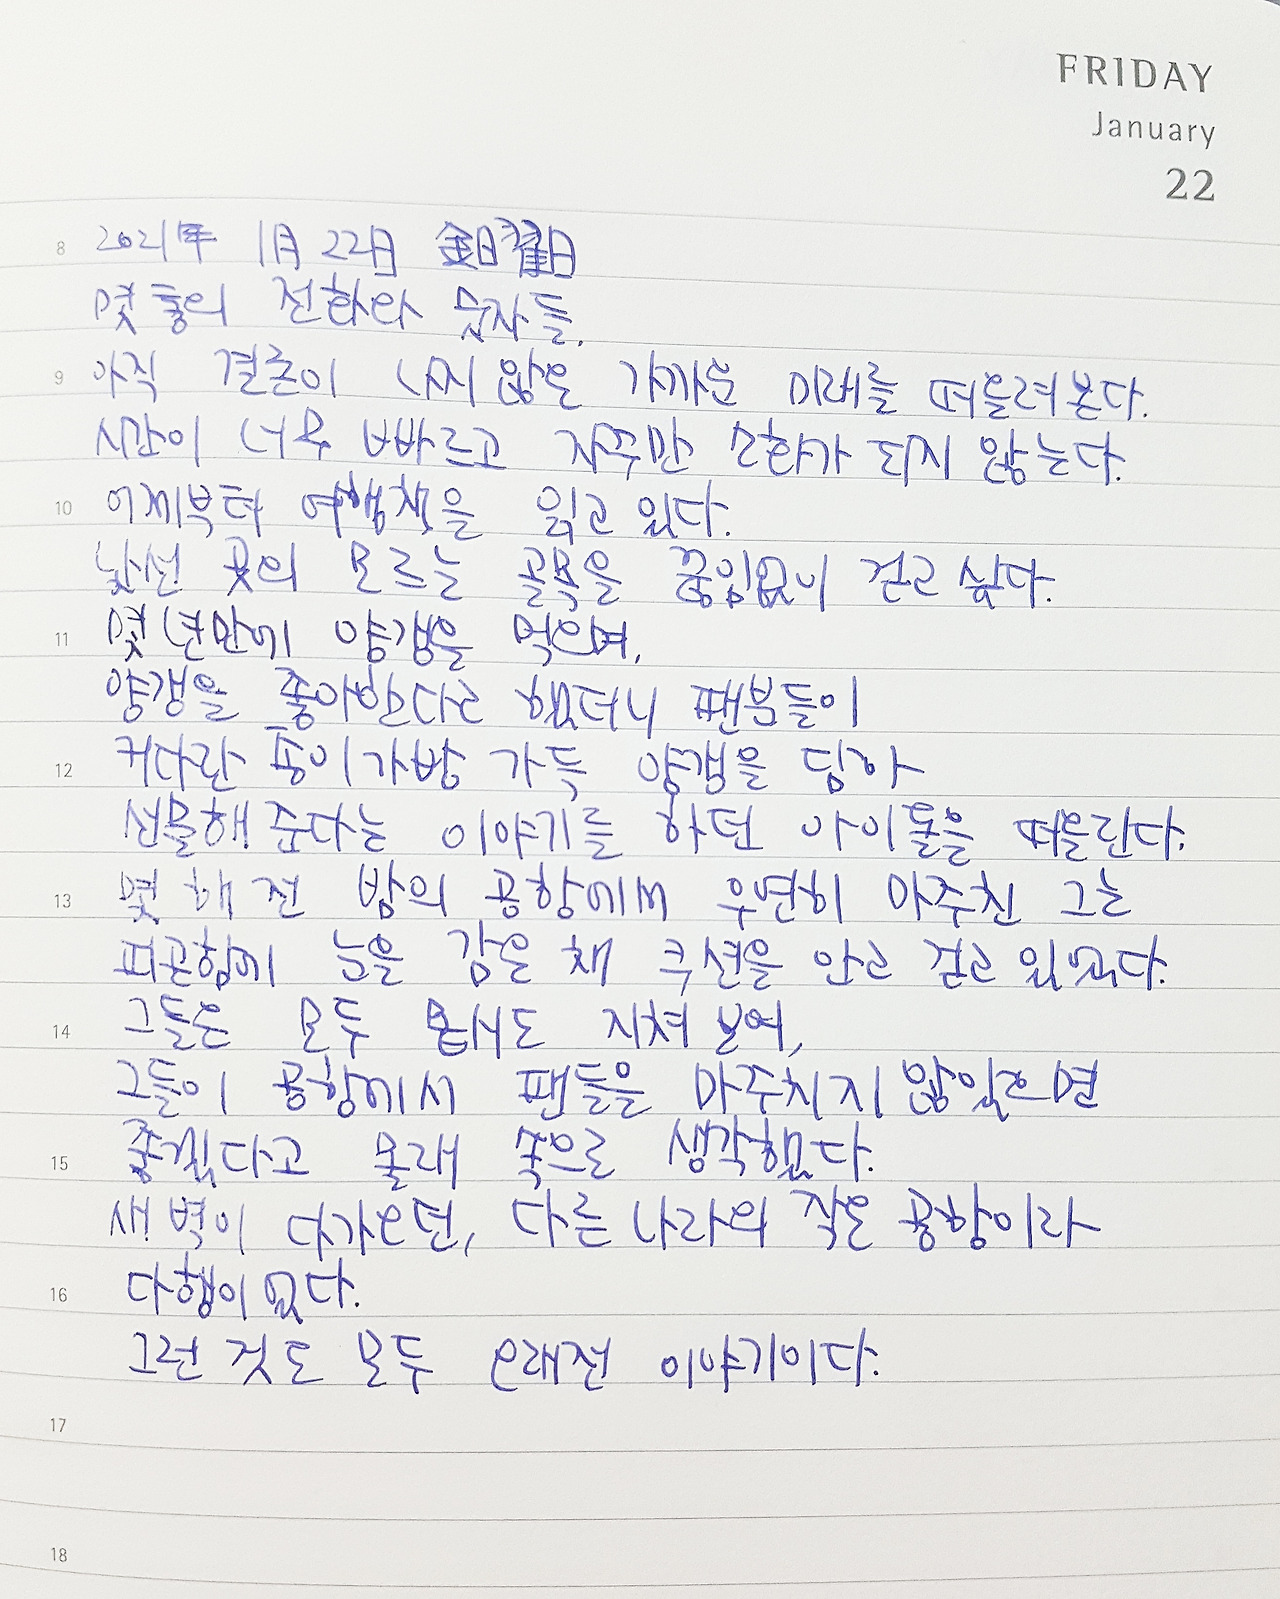 FRIDAY
January
22
8 2021年 1月 22日 金曜日
몇 통의 전화와 숫자들.
9 아직 결론이 나지 않은 가까운 미래를 떠올려본다.
시간이 너무 빠르고 자주만 소화가 되지 않는다.
10 어제부터 여행책을 읽고 있다.
낯선 곳의 모르는 골목을 끊임없이 걷고 싶다.
11 몇 년만에 양갱을 먹으며,
양갱을 좋아한다고 했더니 팬분들이
12 커다란 종이가방 가득 양갱을 담아
선물해 준다는 이야기를 하던 아이돌을 떠올린다.
13 몇 해 전 밤의 공항에서 우연히 마주친 그는
피곤함에 눈을 감은 채 쿠션을 안고 걷고 있었다.
14 그들은 모두 몹시도 지쳐 보여,
그들이 공항에서 팬들을 마주치지 않았으면
15 좋겠다고 몰래 속으로 생각했다.
새벽이 다가오던, 다른 나라의 작은 공항이라
16 다행이었다.
그런 것도 모두 오래전 이야기이다.
17
18